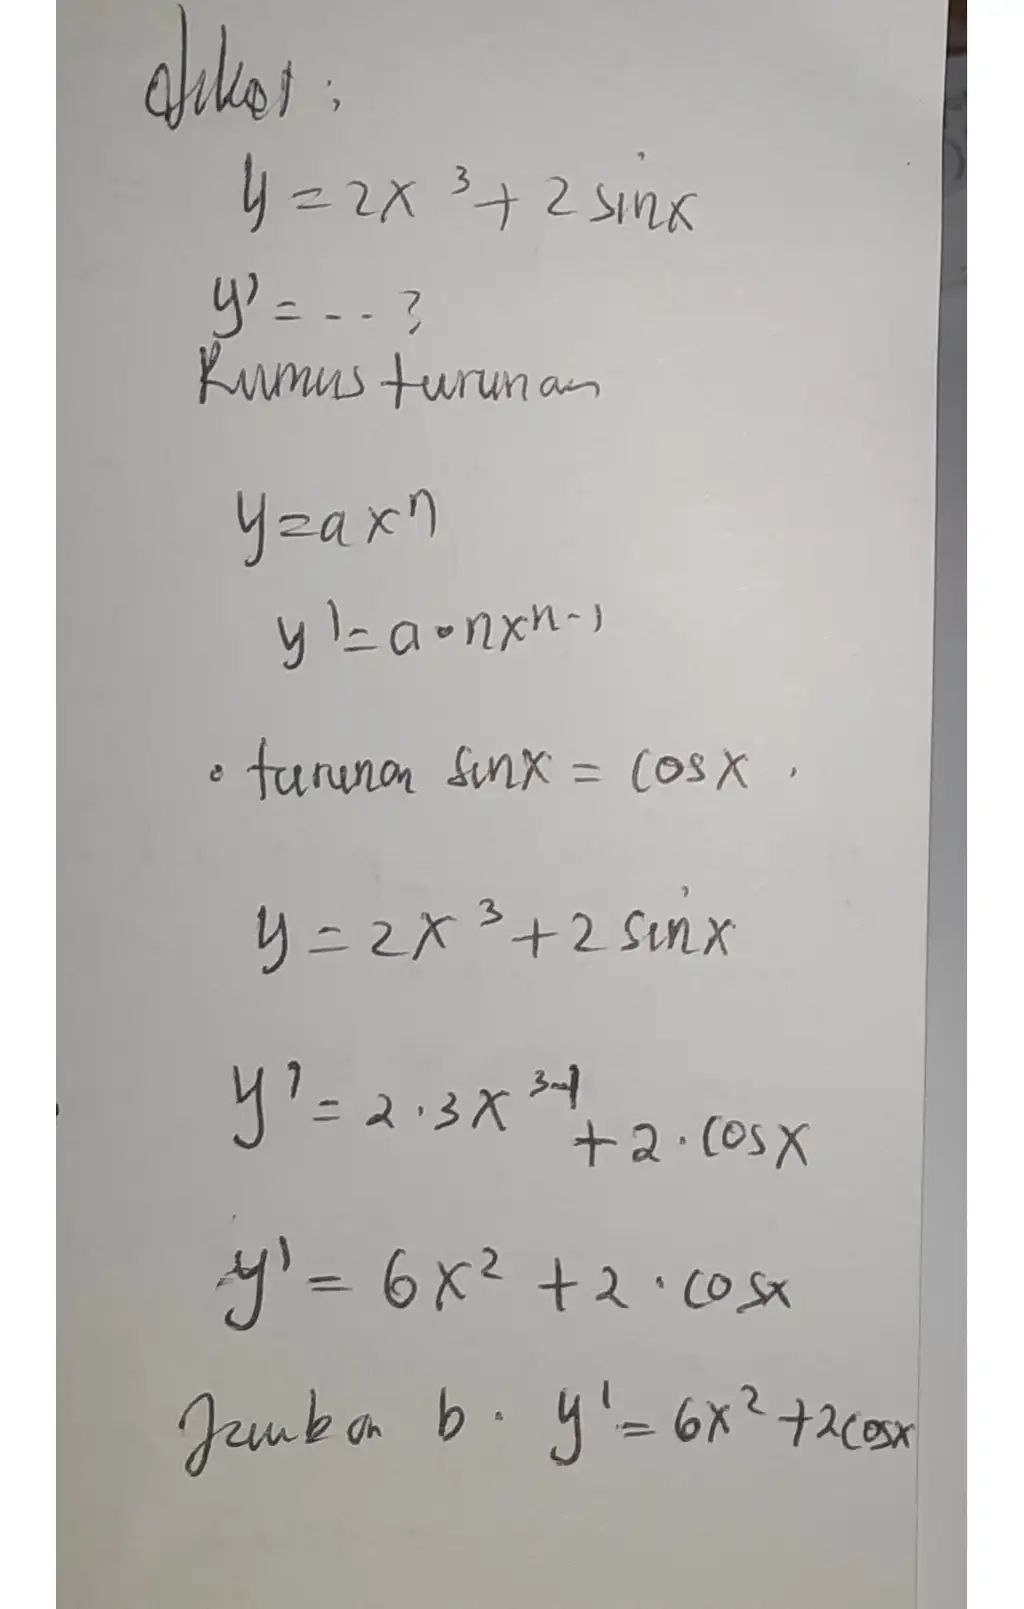 diket :
y = 2x³ + 2 sinx
y' = ... ?
Rumus turunan
y = axⁿ
y' = a • nxⁿ⁻¹
• turunan sinx = cosx .
y = 2x³ + 2 sinx
y' = 2 . 3x³⁻¹ + 2 . cosx
y' = 6x² + 2 . cosx
Jawaban b . y' = 6x² + 2cosx